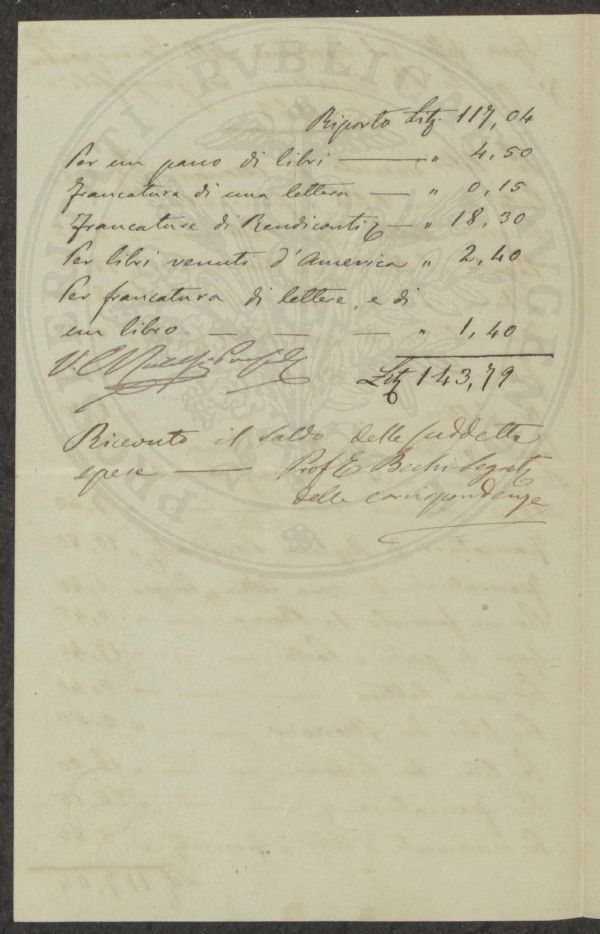 Riporto Litz. 117,04
Per un pacco di libri — " 4,50
Francatura di una lettera — " 0,15
Francature di Rendiconti — " 18,30
Per libri venuti d'America " 2,40
Per francatura di lettere, e di
un libro — — — " 1,40
Litz 143,79
Ricevuto il saldo delle suddette
spese — Prof E Bechi Segret
delle corrispondenze